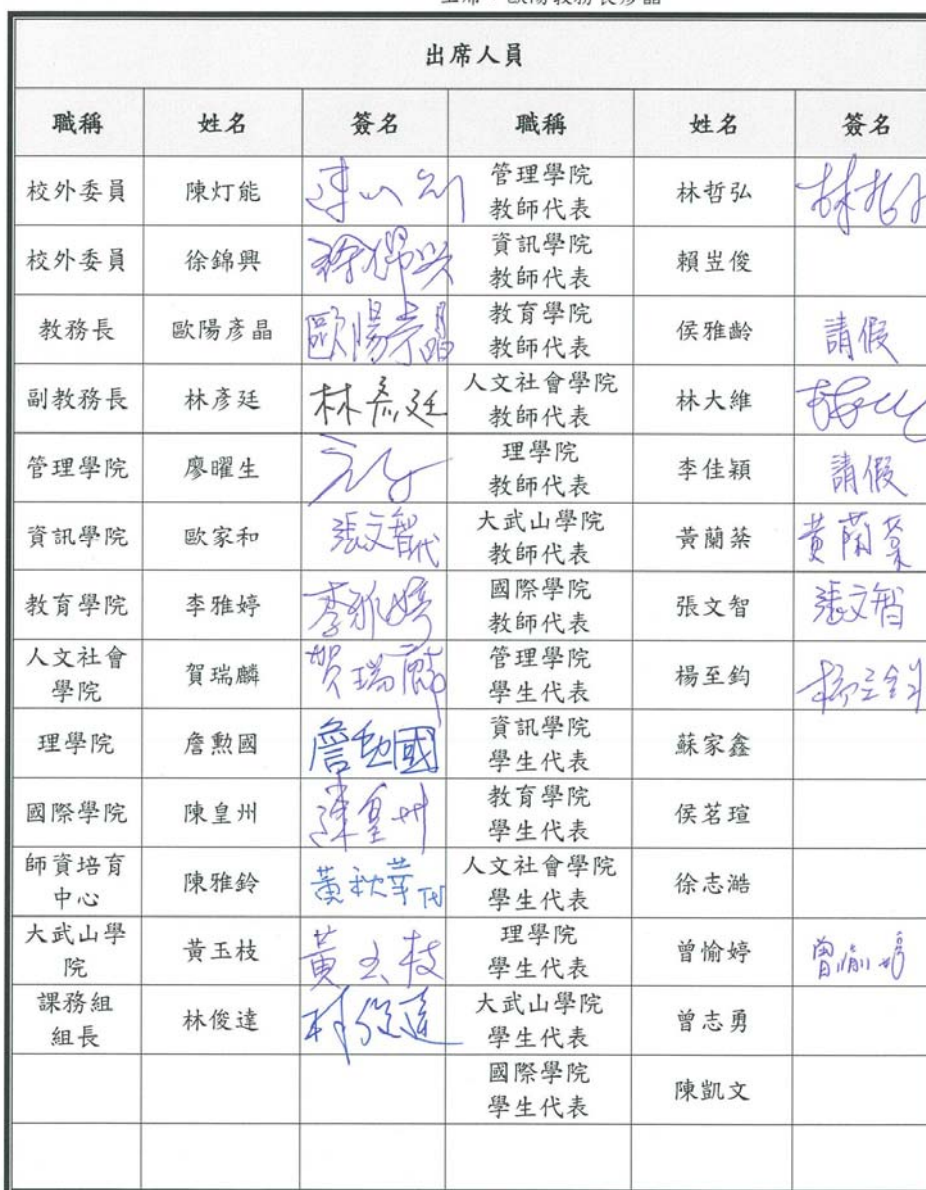 主席：歐陽教務長彥晶
出席人員
職稱 姓名 簽名 職稱 姓名 簽名
校外委員 陳灯能 管理學院 教師代表 林哲弘
校外委員 徐錦興 徐錦興 資訊學院 教師代表 賴岦俊
教務長 歐陽彥晶 歐陽彥晶 教育學院 教師代表 侯雅齡 請假
副教務長 林彥廷 林彥廷 人文社會學院 教師代表 林大維
管理學院 廖曜生 理學院 教師代表 李佳穎 請假
資訊學院 歐家和 張文智代 大武山學院 教師代表 黃蘭棻 黃蘭棻
教育學院 李雅婷 李雅婷 國際學院 教師代表 張文智 張文智
人文社會學院 賀瑞麟 賀瑞麟 管理學院 學生代表 楊至鈞 楊至鈞
理學院 詹勲國 詹勲國 資訊學院 學生代表 蘇家鑫
國際學院 陳皇州 陳皇州 教育學院 學生代表 侯茗瑄
師資培育中心 陳雅鈴 黃秋華代 人文社會學院 學生代表 徐志澔
大武山學院 黃玉枝 黃玉枝 理學院 學生代表 曾愉婷 曾愉婷
課務組組長 林俊達 林俊達 大武山學院 學生代表 曾志勇
國際學院 學生代表 陳凱文